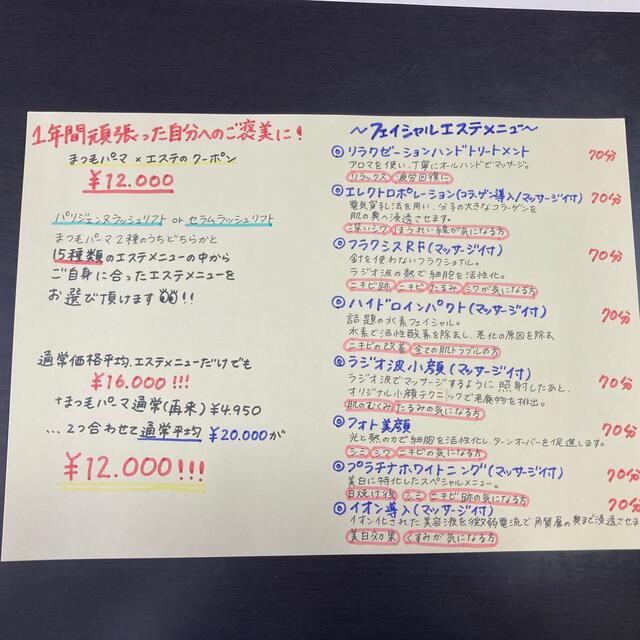 1年間頑張った自分へのご褒美に!
まつ毛パーマ × エステの クーポン
¥12.000
パリジェンヌラッシュリフト or セラムラッシュリフト
まつ毛パーマ2種のうちどちらかと
15種類のエステメニューの中から
ご自身に合ったエステメニューを
お選び頂けます!!
通常価格平均、エステメニューだけでも
¥16.000!!!
+まつ毛パーマ通常(再来)¥4950
...2つ合わせて通常平均 ¥20.000が
¥12.000!!!
〜フェイシャルエステメニュー〜
◎リラクゼーションハンドトリートメント 70分
アロマを使い、丁寧にオールハンドでマッサージ。
リラックス 疲労回復に
◎エレクトロポレーション(コラーゲン導入/マッサージ付) 70分
電気穿孔法を用い、分子の大きなコラーゲンを
肌の奥へ浸透させます。
深いシワ ほうれい線が気になる方
◎フラクシスRF(マッサージ付) 70分
針を使わないフラクショナル。
ラジオ波の熱で細胞を活性化。
ニキビ跡 ニキビ たるみ シワが気になる方
◎ハイドロインパクト(マッサージ付) 70分
話題の水素フェイシャル。
水素で活性酸素を除去し、老化の原因を除去
ニキビの改善 全ての肌トラブルの方
◎ラジオ波小顔(マッサージ付) 70分
ラジオ波でマッサージするように照射したあと、
オリジナル小顔テクニックで老廃物を排出。
肌のむくみ たるみの気になる方
◎フォト美顔 70分
光と熱の力で細胞を活性化し、ターンオーバーを促進します。
シミ シワ ニキビの気になる方
◎プラチナホワイトニング(マッサージ付) 70分
美白に特化したスペシャルメニュー。
日焼け後 シミ ニキビ跡の気になる方
◎イオン導入(マッサージ付) 70分
イオン化された美容液を微弱電流で角質層の奥まで浸透させま
美白効果 くすみが気になる方